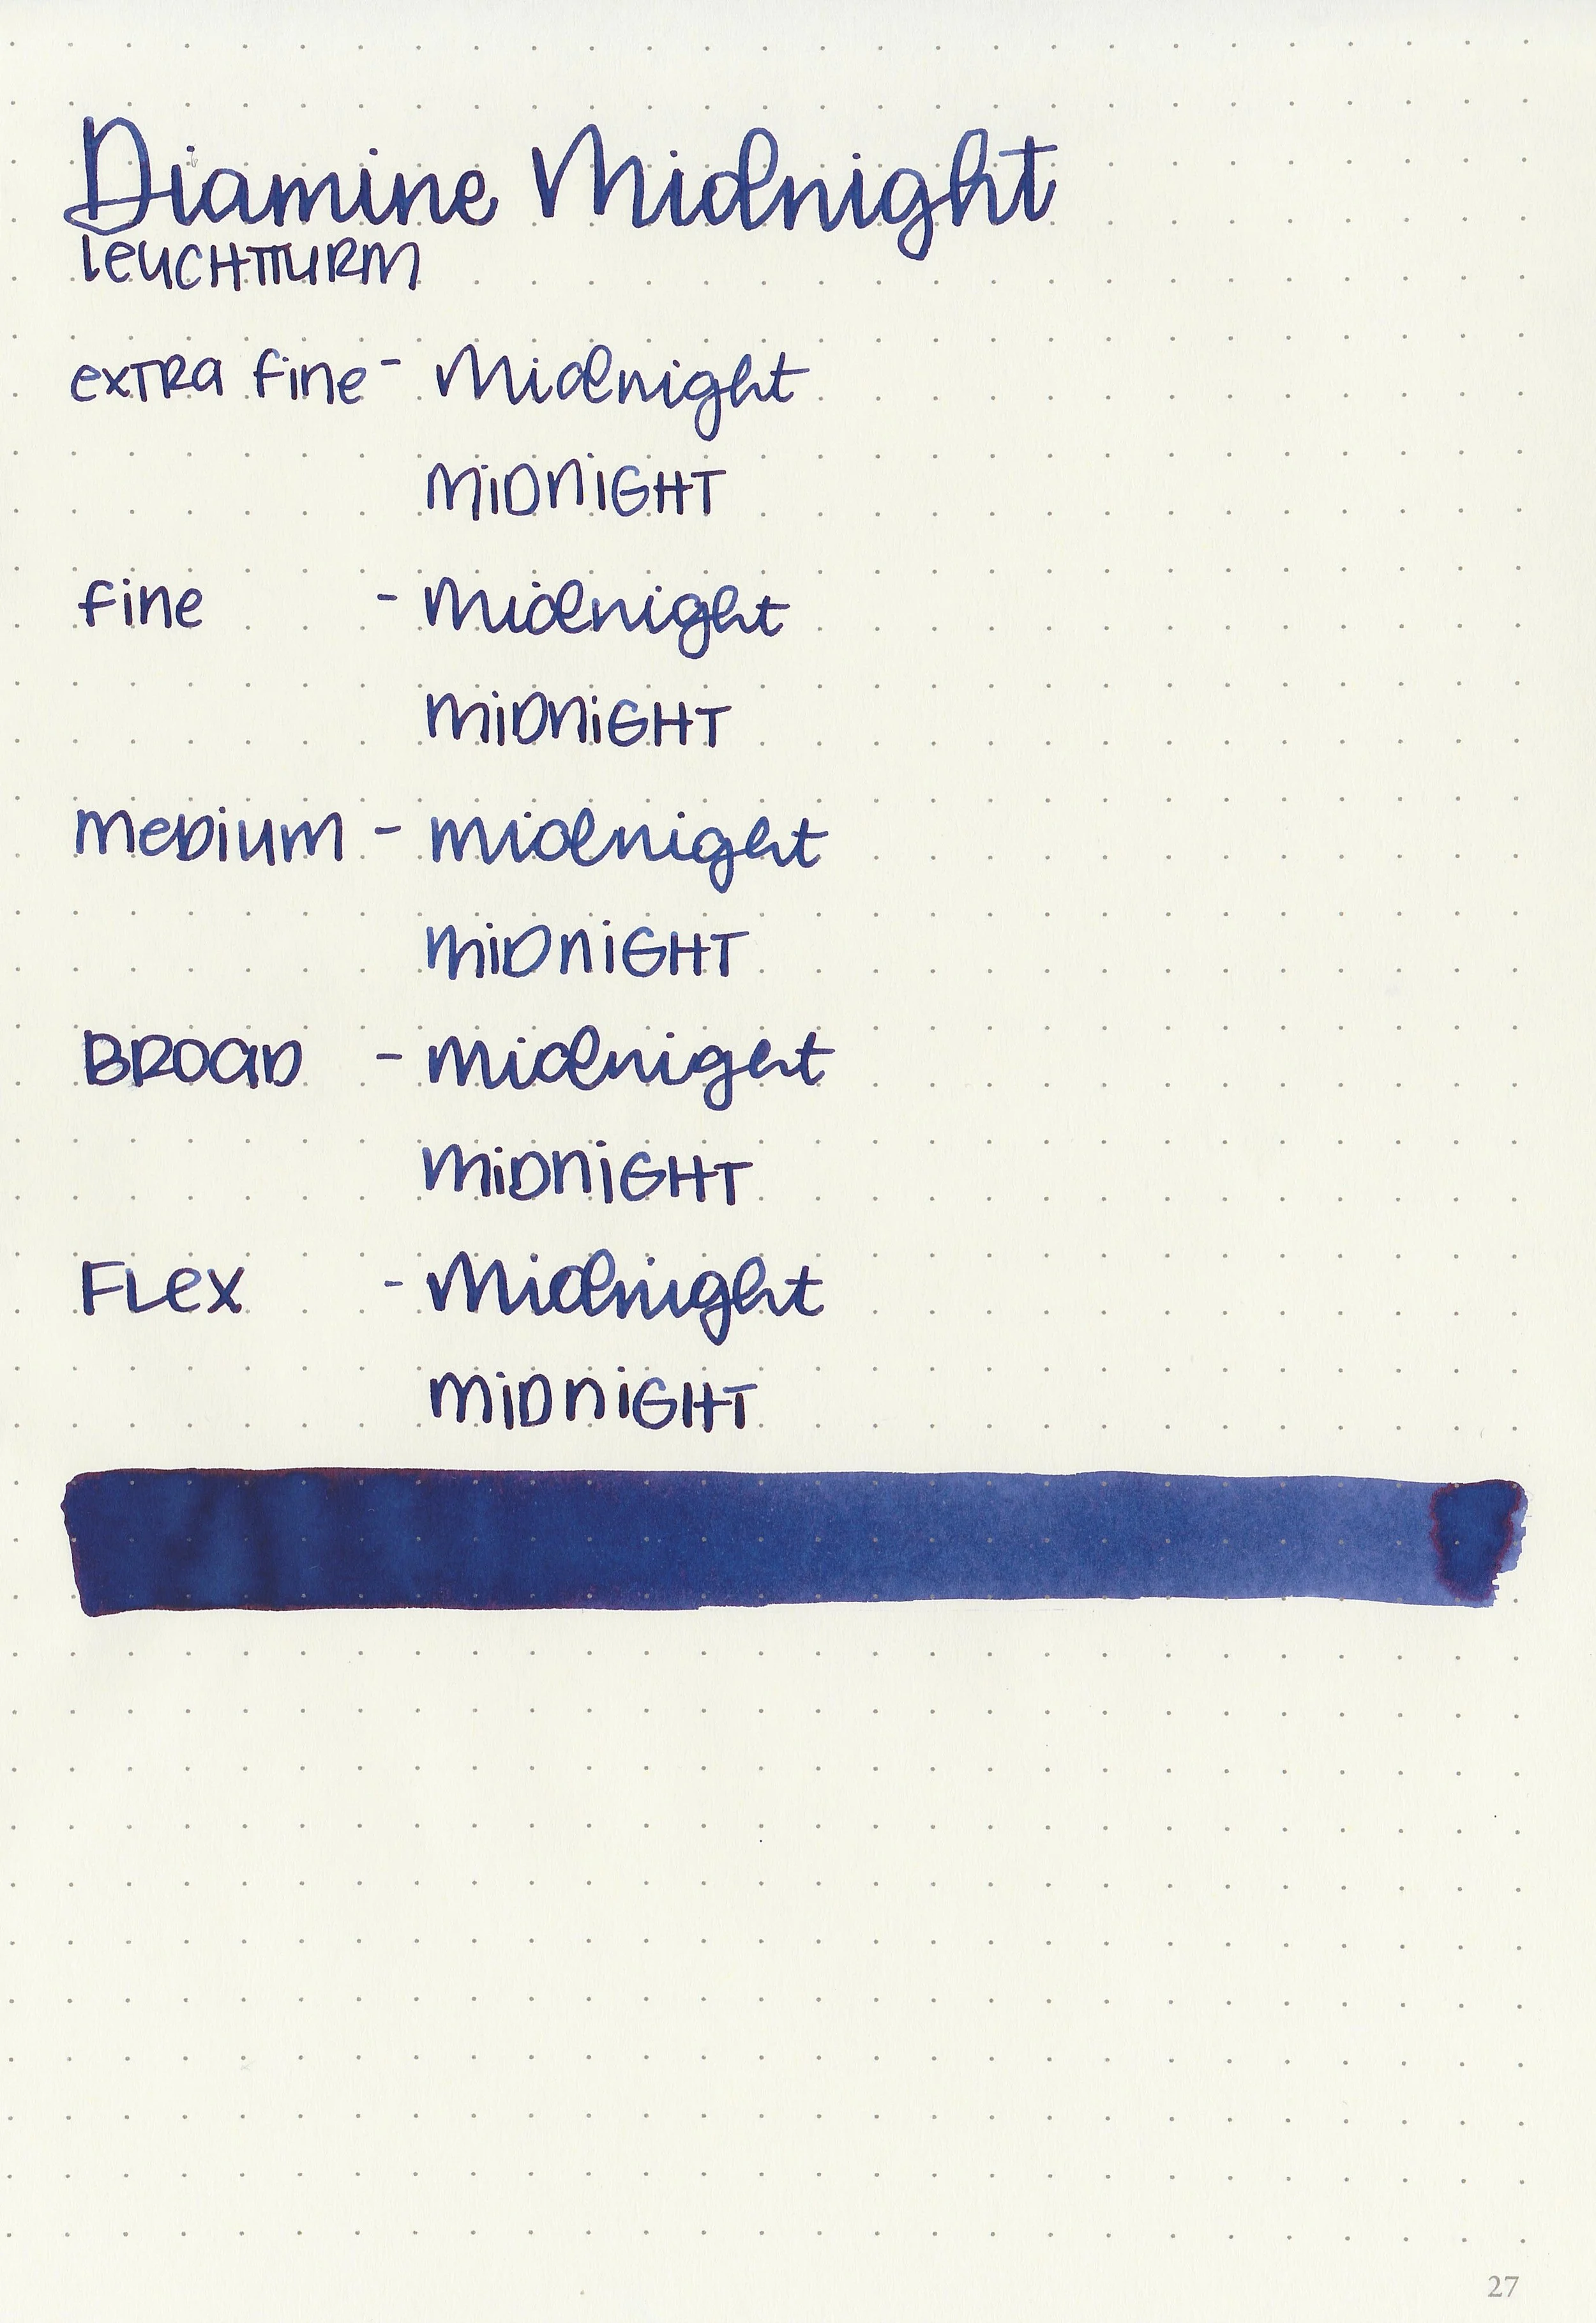 Diamine Midnight
LEUCHTTURM
EXTRA FINE - Midnight
MIDNIGHT
FINE - Midnight
MIDNIGHT
MEDIUM - Midnight
MIDNIGHT
BROAD - Midnight
MIDNIGHT
FLEX - Midnight
MIDNIGHT
27